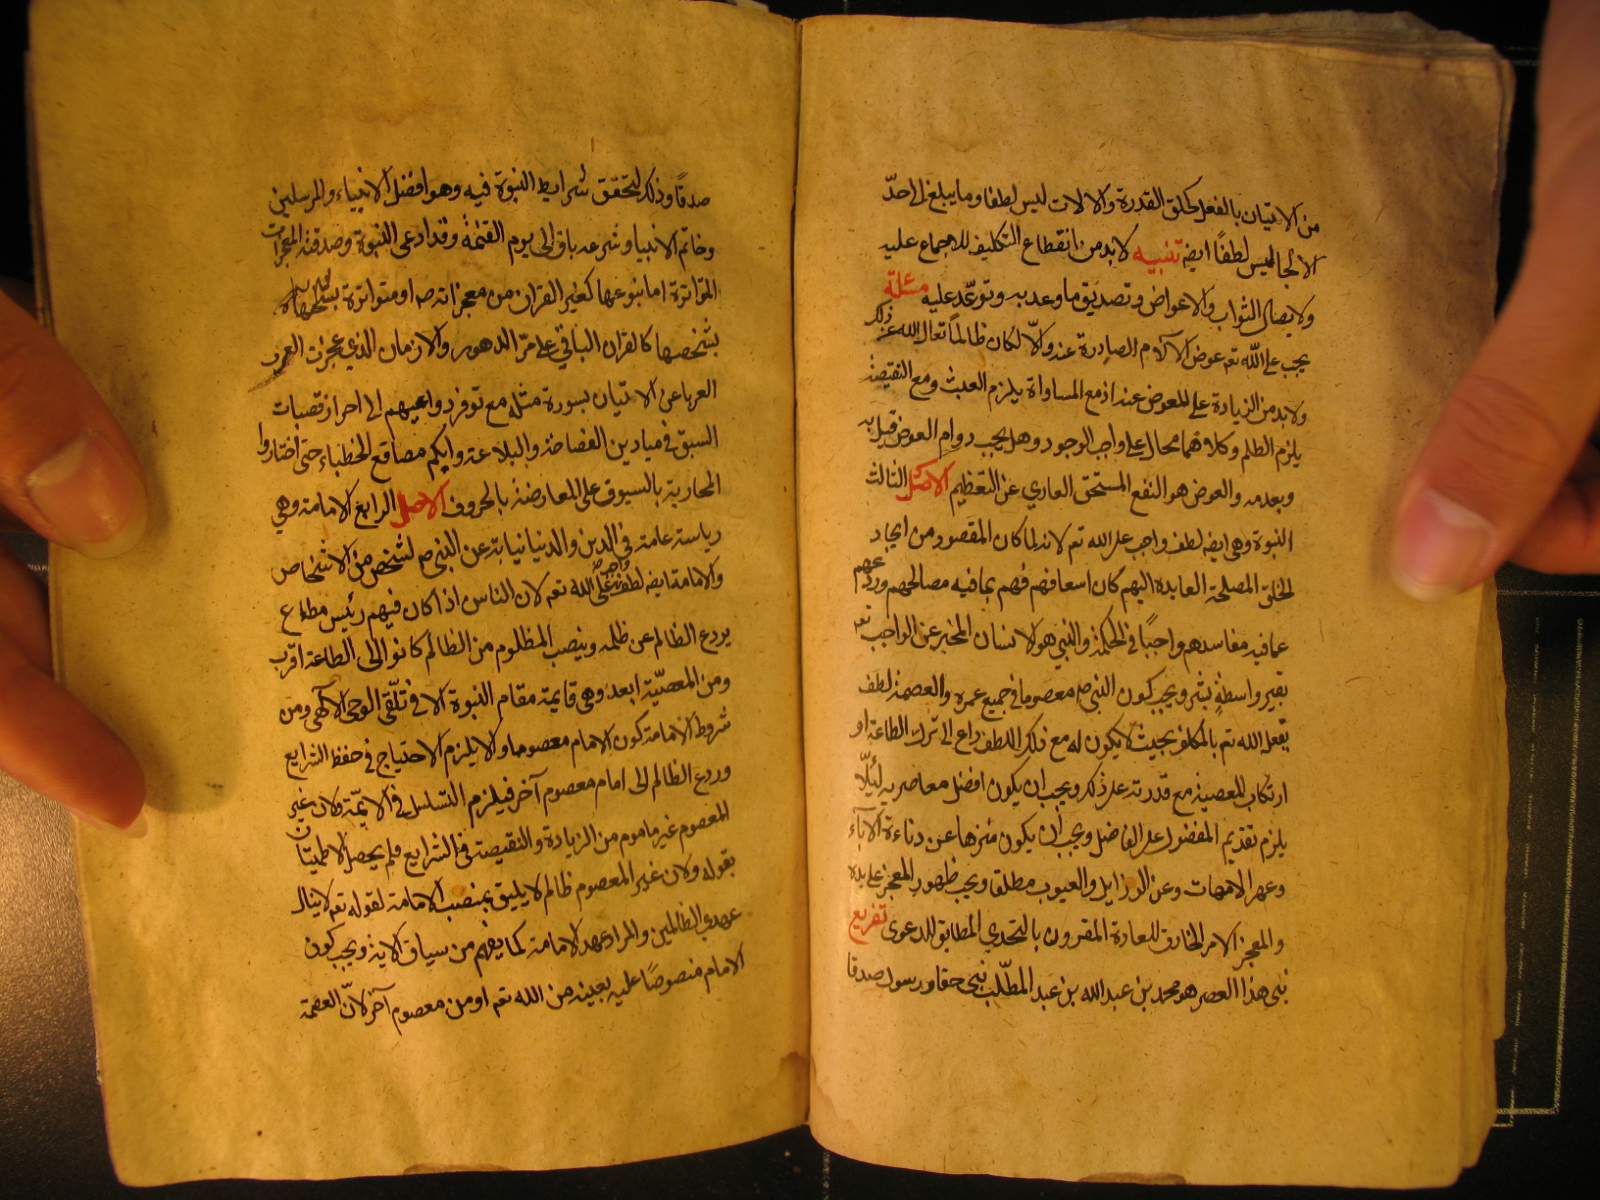 من الاتيان بالفعل كخلق القدرة والالات ليس لطفا وما يبلغ الى احدّ
الالجا ليس لطفاً ايض تنبيه لابد من انقطاع التكليف للاجماع عليه
ولايصال الثواب والاعواض وتصديق ما وعد به وتوعّد عليه مسئلة
يجب على الله تع عوض الآلام الصادرة عنه والاّ لكان ظالماً تعالى الله عن ذلك
ولابد من الزيادة على المعوض عنه اذ مع المساواة يلزم العبث ومع النقيصة
يلزم الظلم وكلاهما محال على واجب الوجود وهل يجب دوام العوض قيل به
وبعدمه والعوض هو النفع المستحق العاري عن التعظيم الاصل الثالث
النبوة وهي ايض لطف واجب على الله تع لانه لما كان المقصود من ايجاد
الخلق المصلحة العايدة اليهم كان اسعافهم فهم بما فيه مصالحهم وردعهم
عما فيه مفاسدهم واجبًا في الحكمة والنبي هو الانسان المخبر عن الواجب تع
بغير واسطة بشر ويجب كون النبي ص معصوما في جميع عمره والعصمة لطف
يفعل الله تع بالمكلف بحيث لا يكون له مع ذلك اللطف داع الى ترك الطاعة او
ارتكاب المعصية مع قدرته على ذلك ويجب ان يكون افضل معاصريه لئلّا
يلزم تقديم المفضول على الفاضل ويجب أن يكون منزها عن دناءة الآباء
وعهر الامهات وعن الرزايل والعيوب مطلقا ويجب ظهور المعجز على يده
والمعجز الامر الخارق للعادة المقرون بالتحدي المطابق للدعوى تفريع
نبي هذا العصر هو محمد بن عبد الله بن عبد المطّلب نبي حقا ورسول صدقا
صدقاً وذلك لتحقق شرايط النبوة فيه وهو افضل الانبياء والمرسلين
وخاتم الانبيا وشرعه باق الى يوم القيمة وقد ادعى النبوة وصدقته المعجزات
المتواترة اما بنوعها كغير القران من معجزاته ص او متواترة
بشخصها كالقران الباقي على مرّ الدهور والازمان الذي عجزت العرب
العربا عن الاتيان بسورة مثله مع توفر دواعيهم الى احراز قصبات
السبق في ميادين الفصاحة والبلاغة وابكم مصاقع الخطباء حتى اختاروا
المحاربة بالسيوف على المعارضة بالحروف الاصل الرابع الامامة وهي
رياسة عامة في الدين والدنيا نيابة عن النبي ص لشخص من الاشخاص
والامامة ايض لطف واجب على الله تع لان الناس اذا كان فيهم رئيس مطاع
يردع الظالم عن ظلمه وينصب المظلوم من الظالم كانوا الى الطاعة اقرب
ومن المعصيّة ابعد وهي قايمة مقام النبوة الا في تلقّى الوحي الالهي ومن
شروط الامامة كون الامام معصوما والا يلزم الاحتياج في حفظ الشرايع
وردع الظالم الى امام معصوم آخر فيلزم التسلسل في الايمّة ولان غير
المعصوم غير ماموم من الزيادة والنقيصة في الشرايع فلم يحصل الاطمينان
بقوله ولان غير المعصوم ظالم لا يليق بمنصب الامامة لقوله تع لا ينال
عهدي الظالمين والمراد عهد الامامة كما يفهم من سياق الاية ويجب كون
الامام منصوصًا عليه بعينه من الله تع او من معصوم آخر لانّ العصمة